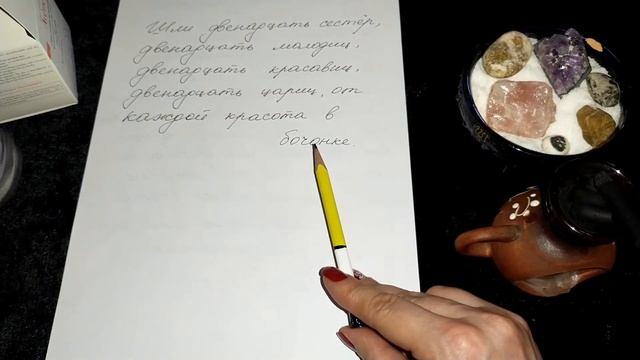 Шли двенадцать сестёр,
двенадцать молодиц,
двенадцать красавиц,
двенадцать цариц, от
каждой красота в
бочонке.